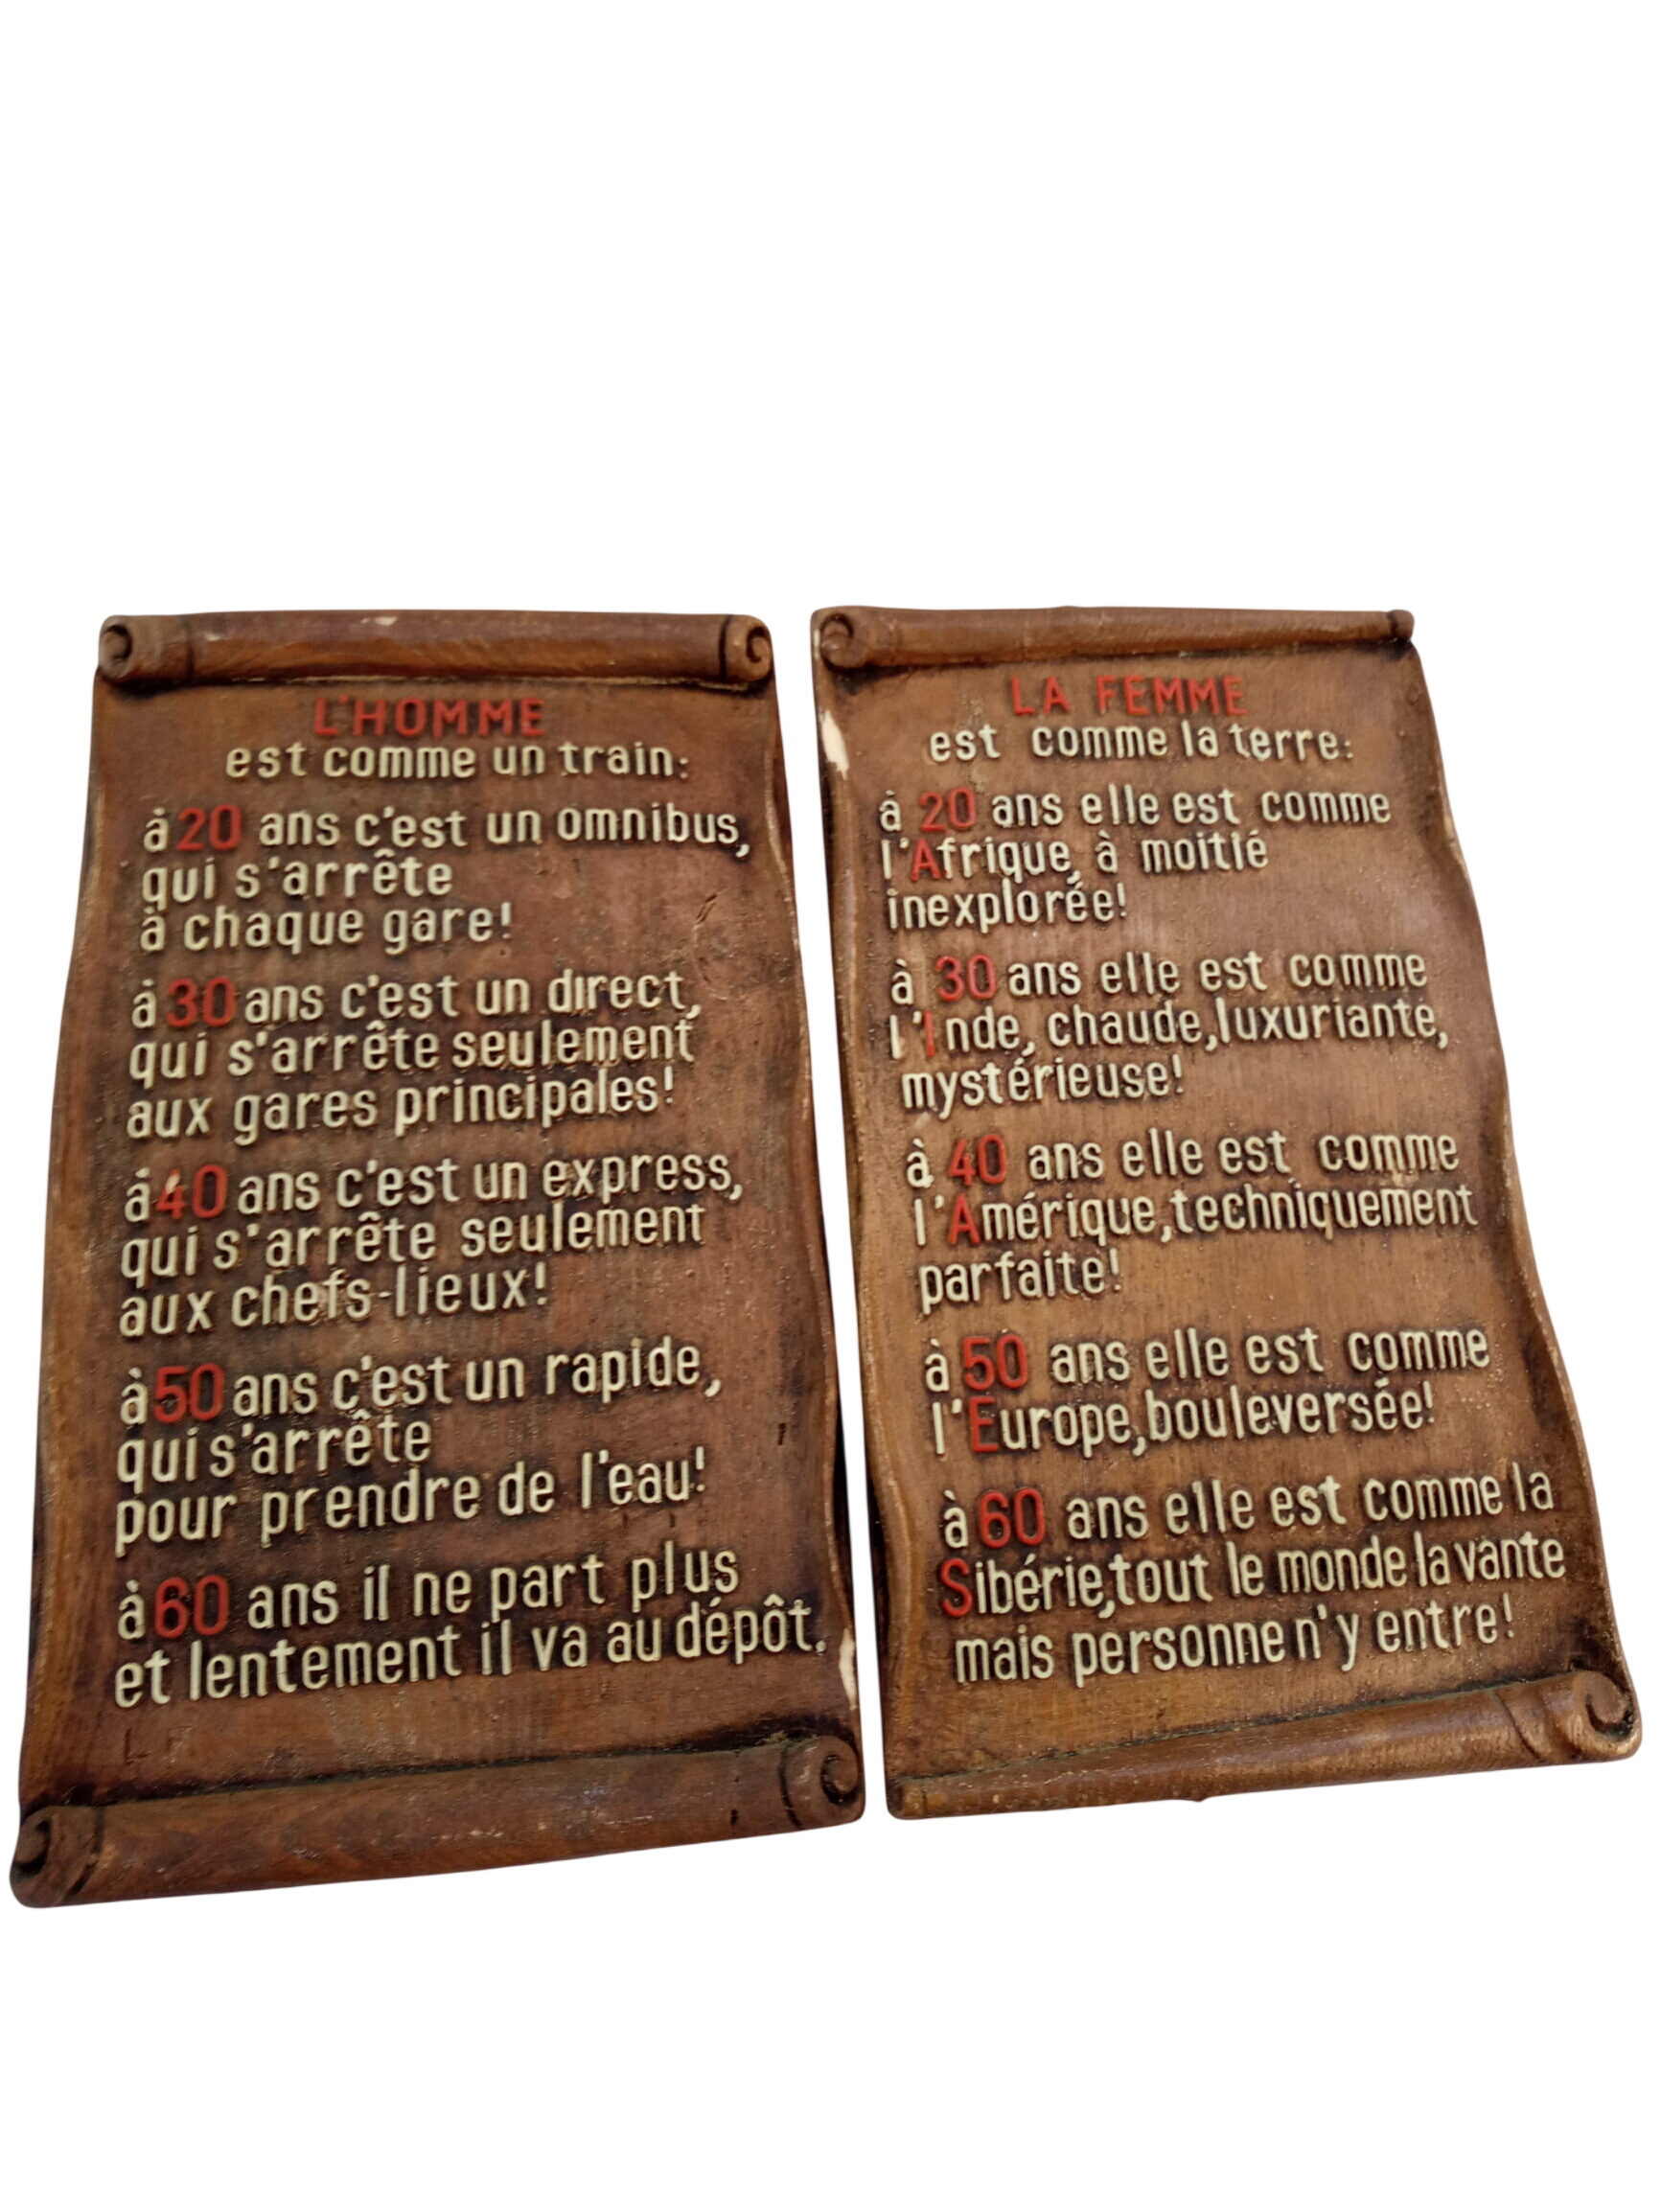 L'HOMME
est comme un train:
à 20 ans c'est un omnibus,
qui s'arrête
à chaque gare!
à 30 ans c'est un direct,
qui s'arrête seulement
aux gares principales!
à 40 ans c'est un express,
qui s'arrête seulement
aux chefs-lieux!
à 50 ans c'est un rapide,
qui s'arrête
pour prendre de l'eau!
à 60 ans il ne part plus
et lentement il va au dépôt.
LA FEMME
est comme la terre:
à 20 ans elle est comme
l'Afrique, à moitié
inexplorée!
à 30 ans elle est comme
l'Inde, chaude, luxuriante,
mystérieuse!
à 40 ans elle est comme
l'Amérique, techniquement
parfaite!
à 50 ans elle est comme
l'Europe, bouleversée!
à 60 ans elle est comme la
Sibérie, tout le monde la vante
mais personne n'y entre!